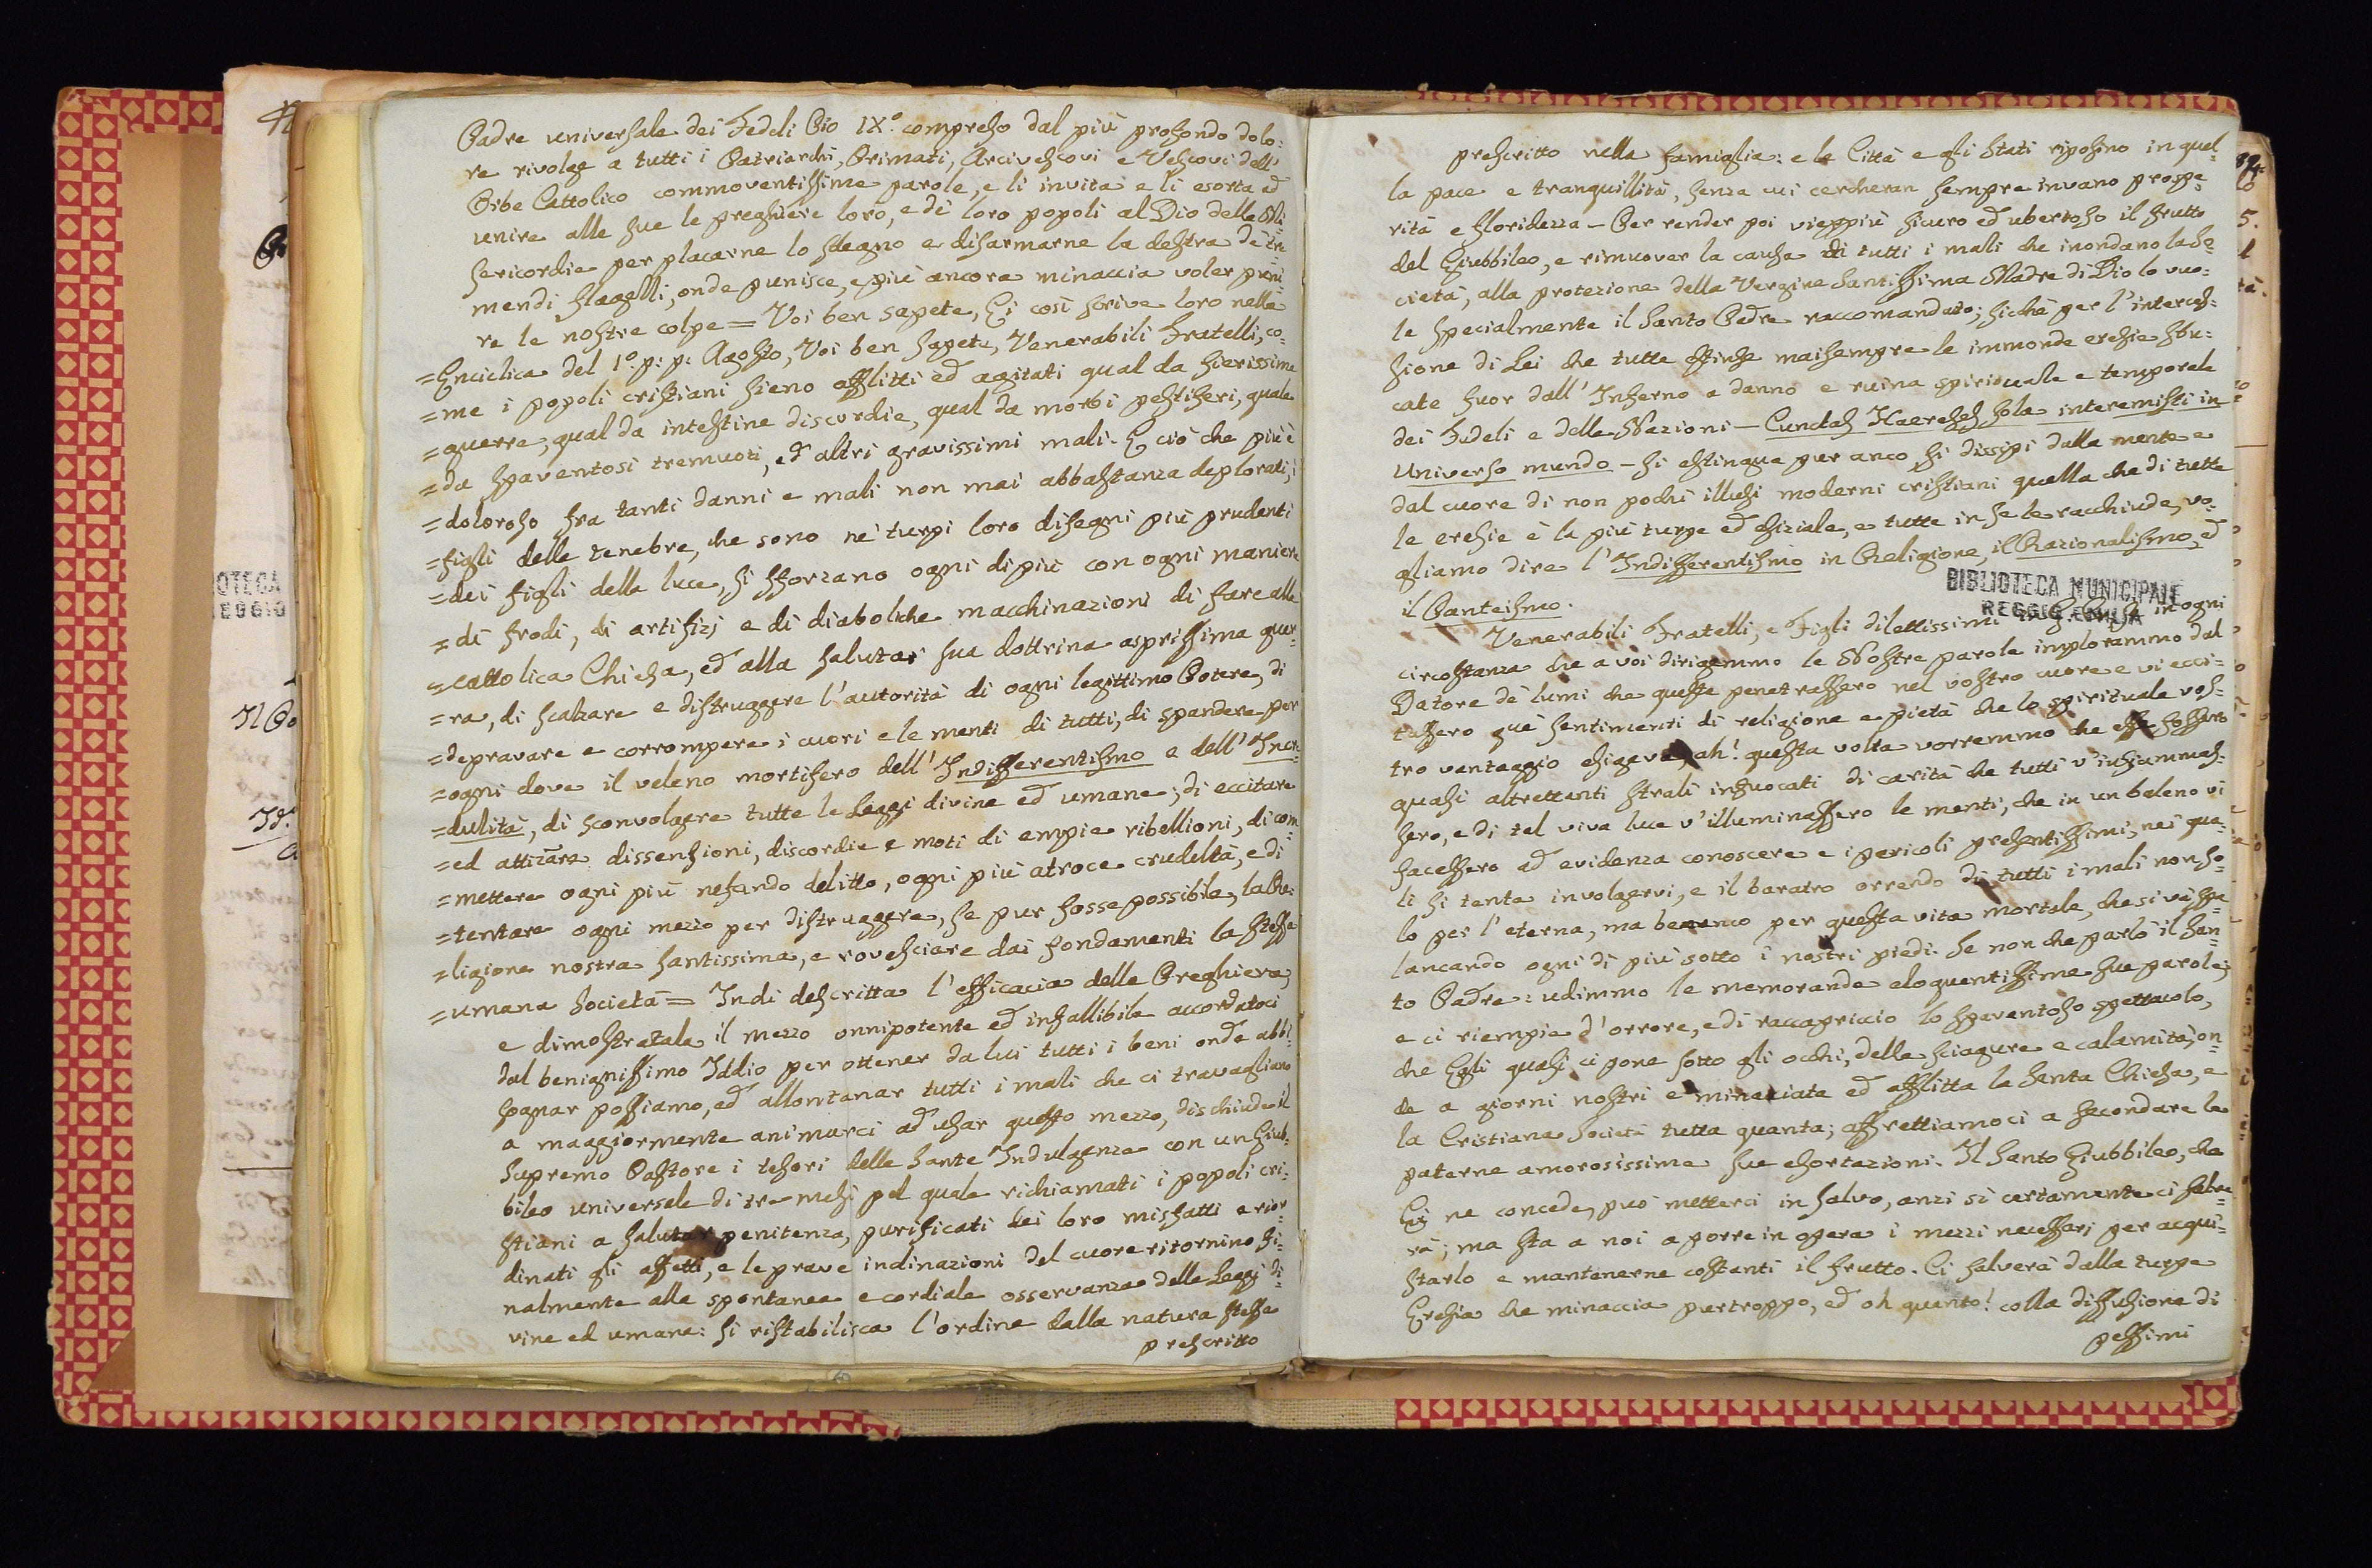 Padre universale dei Fedeli Pio IX.° compreso dal più profondo dolo=
re rivolge a tutti i Patriarchi, Primati, Arcivescovi e Vescovi dell'
Orbe Cattolico commoventissime parole, e li invita e li esorta ad
unire alle sue le preghiere loro, e di loro popoli al Dio delle Mi=
sericordie per placarne lo sdegno e disarmarne la destra de' tre=
mendi flagelli, onde punisce, e più ancora minaccia voler puni=
re le nostre colpe = Voi ben sapete, Ei così scrive loro nella
=Enciclica del 1.° p: p: Agosto, Voi ben sapete, Venerabili Fratelli, co=
=me i popoli cristiani sieno afflitti ed agitati qual da fierissime
=guerre, qual da intestine discordie, qual da morbi pestiferi, quale
=da spaventosi tremuoti, e d'altri gravissimi mali. E ciò che più è
=doloroso fra tanti danni e mali non mai abbastanza deplorati, i
=figli delle tenebre, che sono ne' turpi loro disegni più prudenti
=dei figli della luce, si sforzano ogni dì più con ogni maniera
=di frodi, di artifizj e di diaboliche macchinazioni di fare alla
=cattolica Chiesa, ed alla salutar sua dottrina asprissima guer=
=ra, di scalzare e distruggere l'autorità di ogni legittimo Potere, di
=depravare e corrompere i cuori e le menti di tutti, di spandere per
=ogni dove il veleno mortifero dell'Indifferentismo e dell'Incre=
=dulità, di sconvolgere tutte le Leggi divine ed umane; di eccitare
=ed attizzare dissensioni, discordie e moti di empie ribellioni, di com=
=mettere ogni più nefando delitto, ogni più atroce crudeltà, e di
=tentare ogni mezzo per distruggere, se pur fosse possibile, la Re=
=ligione nostra santissima, e rovesciare dai fondamenti la stessa
=umana Società = Indi descritta l'efficacia delle Preghiera,
e dimostratala il mezzo onnipotente ed infallibile accordatoci
dal benignissimo Iddio per ottener da lui tutti i beni onde abbi=
sognar possiamo, ed allontanar tutti i mali che ci travagliano
a maggiormente animarci ad usar questo mezzo, dischiude il
Supremo Pastore i tesori delle Sante Indulgenze con un Giub=
bileo universale di tre mesi pel quale richiamati i popoli cri=
stiani a salutar penitenza, purificati dei loro misfatti e rior=
dinati gli affetti, e le prave inclinazioni del cuore ritornino fi=
nalmente alla spontanea e cordiale osservanza delle Leggi di=
vine ed umane: si ristabilisca l'ordine dalla natura stessa
prescritto
prescritto nella famiglia: e le Città e gli Stati riposino in quel=
la pace e tranquillità, senza cui cercheran sempre invano prospe=
rità e floridezza — Per render poi vieppiù sicuro ed ubertoso il frutto
del Giubbileo, e rimuover la causa di tutti i mali che inondano la So=
cietà, alla protezione della Vergine Santissima Madre di Dio lo vuo=
le specialmente il Santo Padre raccomandato; sichè per l'interces=
sione di Lei che tutte estinse maisempre le immonde eresie sbu=
cate fuor dall'Inferno a danno e ruina spirituale e temporale
dei Fedeli e delle Nazioni — Cunctas Haereses sola interemisti in
Universo mundo — si estingua pur anco si dissipi dalla mente e
dal cuore di non pochi illusi moderni cristiani quella che di tutte
le eresie è la più turpe ed esiziale, e tutte in se le racchiude, vo=
gliamo dire l'Indifferentismo in Religione, il Razionalismo, ed
il Panteismo.
BIBLIOTECA MUNICIPALE
REGGIO EMILIA
Venerabili Fratelli, e Figli dilettissimi in ogni
circostanza che a voi dirigemmo le Nostre parole implorammo dal
Datore de' lumi che queste penetrassero nel vostro cuore e vi ecci=
tassero que' sentimenti di religione e pietà che lo spirituale vos=
tro vantaggio esigeva; ah! questa volta vorremmo che esse fossero
quasi altrettanti strali infuocati di carità che tutti v'infiammas=
sero, e di tal viva luce v'illuminassero le menti, che in un baleno vi
facessero ad evidenza conoscere e i pericoli presentissimi, nei qua=
li si tenta involgervi, e il baratro orrendo di tutti i mali non so=
lo per l'eterna, ma benanco per questa vita mortale, che si va spa=
lancando ogni dì più sotto i nostri piedi. Se non che parlò il San=
to Padre: udimmo le memorande eloquentissime sue parole;
e ci riempie d'orrore, e di raccapriccio lo spaventoso spettacolo,
che Egli quasi ci pone sotto gli occhi, delle sciagure e calamità, on=
de a giorni nostri è minacciata ed afflitta la Santa Chiesa, e
la Cristiana Società tutta quanta; affrettiamoci a secondare le
paterne amorosissime sue esortazioni. Il Santo Giubbileo, che
Ei ne concede, può metterci in salvo, anzi si certamente ci salve=
rà; ma sta a noi a porre in opera i mezzi necessarj per acqui=
starlo e mantenerne costanti il frutto. Ci salverà dalla turpe
Eresia che minaccia purtroppo, ed oh quanto! colla diffusione di
pessimi